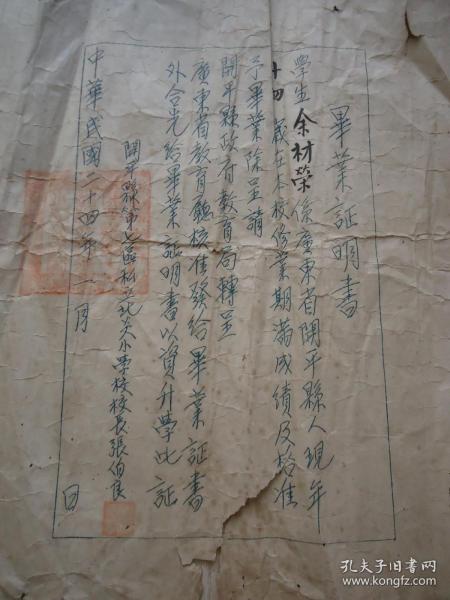 畢業証明書
學生余材榮係廣東省開平縣人現年
十四歲在本校修業期滿成績及格准
予畢業除呈請
開平縣政府教育局轉呈
廣東省教育廳核准發給畢業証書
外合先給畢業証明書以資升學此証
開平縣第區私立英小學校校長張伯良
中華民國二十四年一月 日
孔夫子旧书网
www.kongfz.com